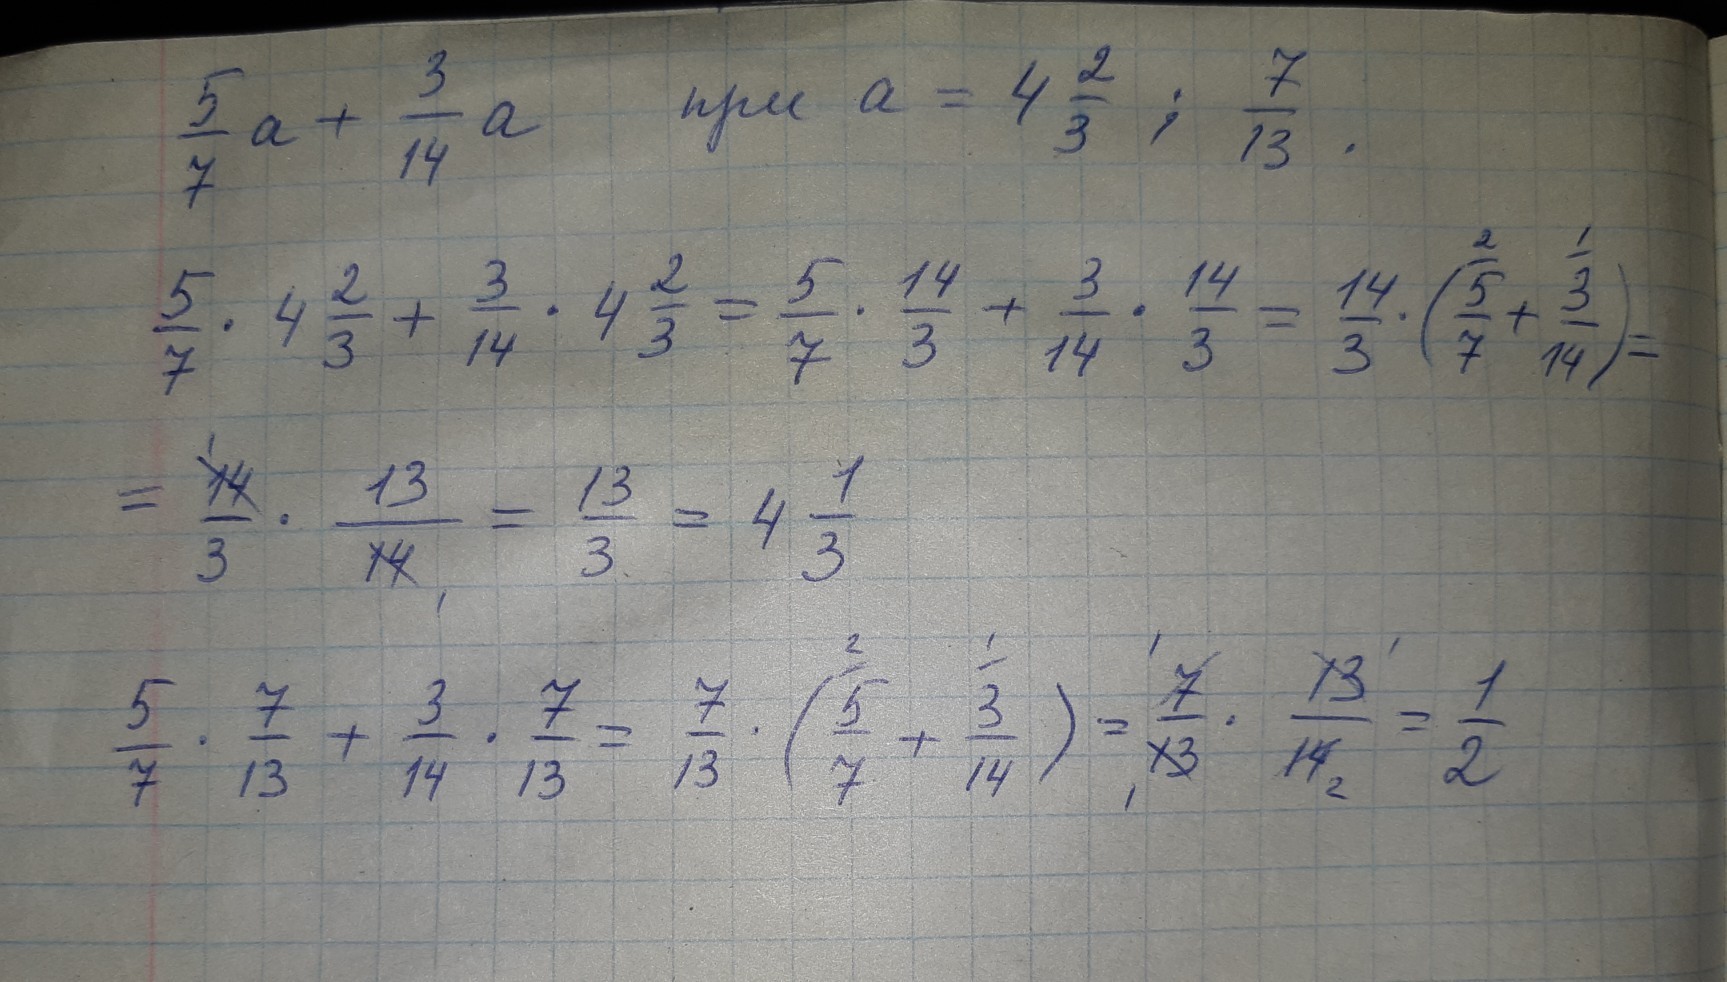 5/7 a + 3/14 a при a = 4 2/3 ; 7/13 .
5/7 · 4 2/3 + 3/14 · 4 2/3 = 5/7 · 14/3 + 3/14 · 14/3 = 14/3 · ( 2 5/7 + 1 3/14 ) =
= 1 14/3 · 13/14 1 = 13/3 = 4 1/3
5/7 · 7/13 + 3/14 · 7/13 = 7/13 · ( 2 5/7 + 1 3/14 ) = 1 7/13 1 · 13 1/14 2 = 1/2